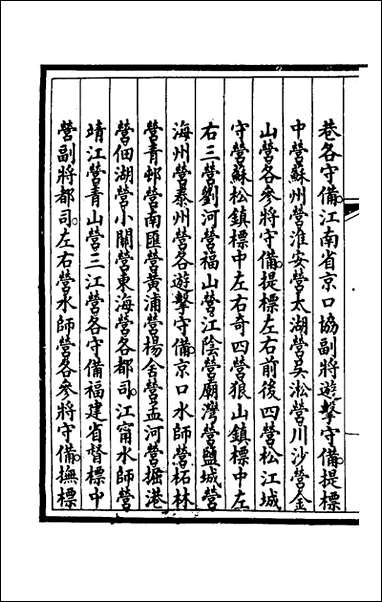 巷各守備。江南省京口協副將遊擊守備。提標
中營蘇州營淮安營太湖營吳淞營川沙營金
山營各參將守備。提標左右前後四營松江城
守營蘇松鎮標中左右奇四營狼山鎮標中左
右三營劉河營福山營江陰營廟灣營鹽城營
海州營泰州營各遊擊守備。京口水師營柘林
營青邨營南匯營黃浦營楊舍營孟河營掘港
營佃湖營小關營東海營各都司。江甯水師營
靖江營青山營三江營各守備福建省督標中
營副將都司。左右營水師營各參將守備。撫標